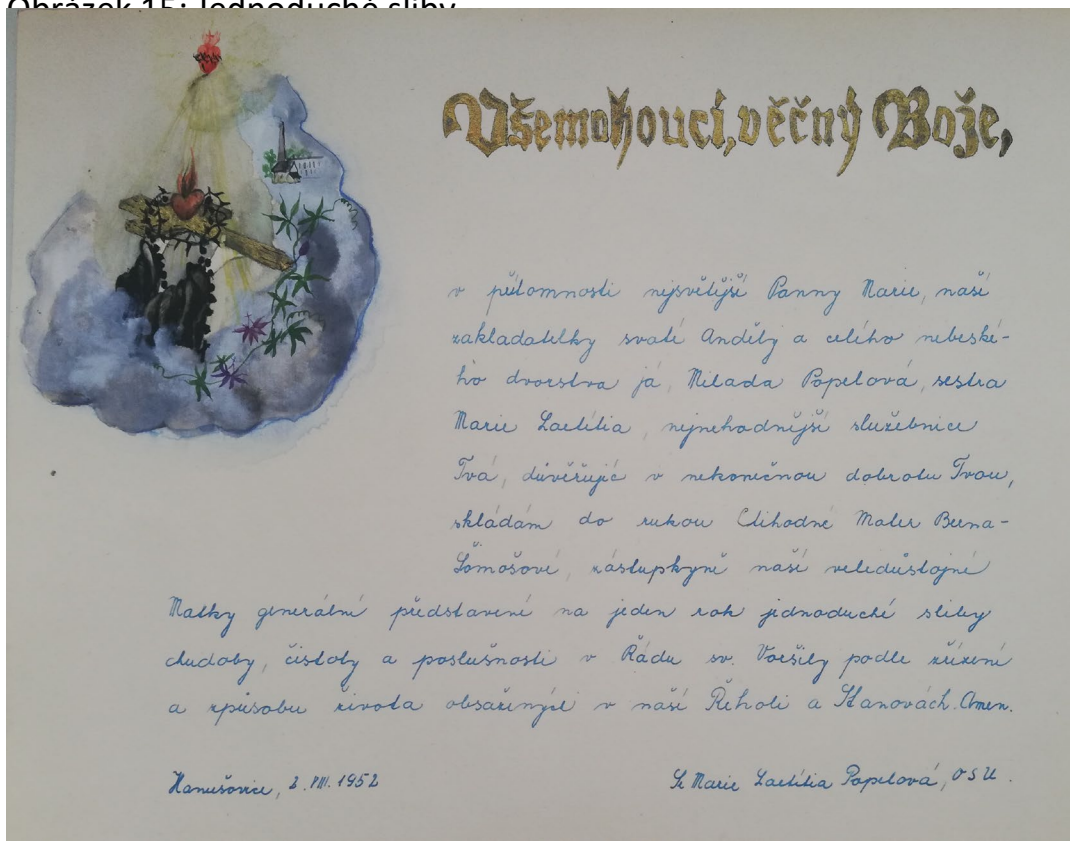 Obrázek 15: Jednoduché sliby
Všemohoucí, věčný Bože,
v přítomnosti nejsvětější Panny Marie, naší
zakladatelky svaté Anděly a celého nebeské-
ho dvorstva já, Milada Popelová, sestra
Marie Laetitia, nejnehodnější služebnice
Tvá, důvěřujíc v nekonečnou dobrotu Tvou,
skládám do rukou Ctihodné Mater
zástupkyně naší veledůstojné
Matky generální představené na jeden rok jednoduché sliby
chudoby, čistoty a poslušnosti v Řádu sv. Voršily podle zřízení
a způsobu života obsažených v naší Řeholi a Stanovách. Amen.
Hanušovice, 2. VIII. 1952
Sr Marie Laetitia Popelová, OSU.